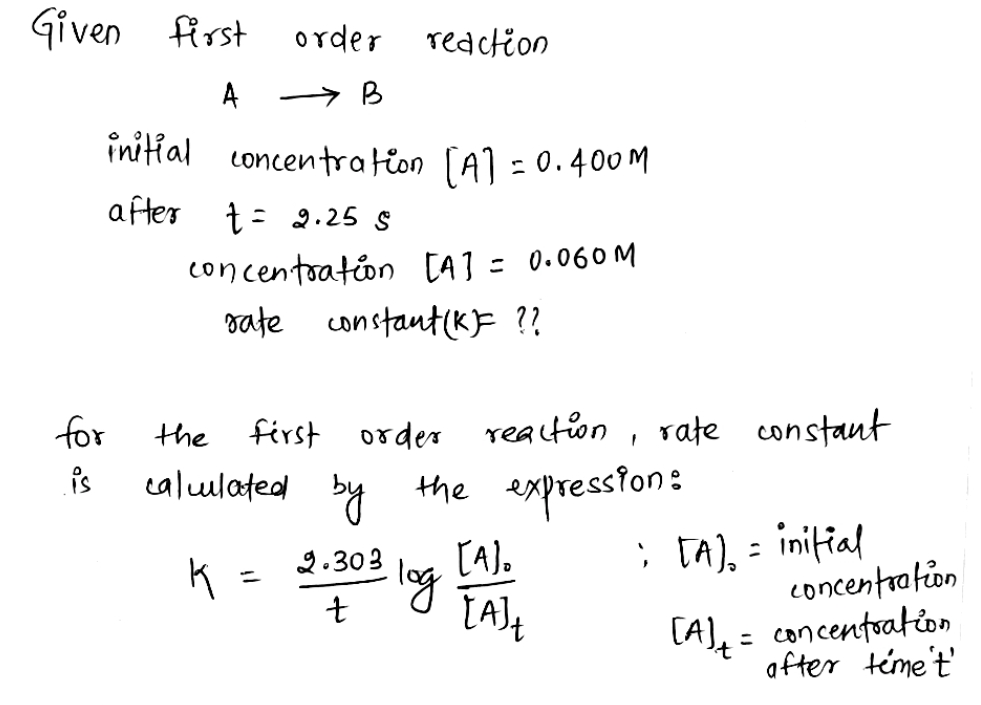 Given first order reaction
A ⟶ B
initial concentration [A] = 0.400M
after t = 2.25 s
concentration [A] = 0.060M
rate constant(K)= ??
for the first order reaction, rate constant
is calculated by the expression:
K = 2.303/t log [A]₀/[A]t ; [A]₀ = initial
concentration
[A]t = concentration
after time 't'